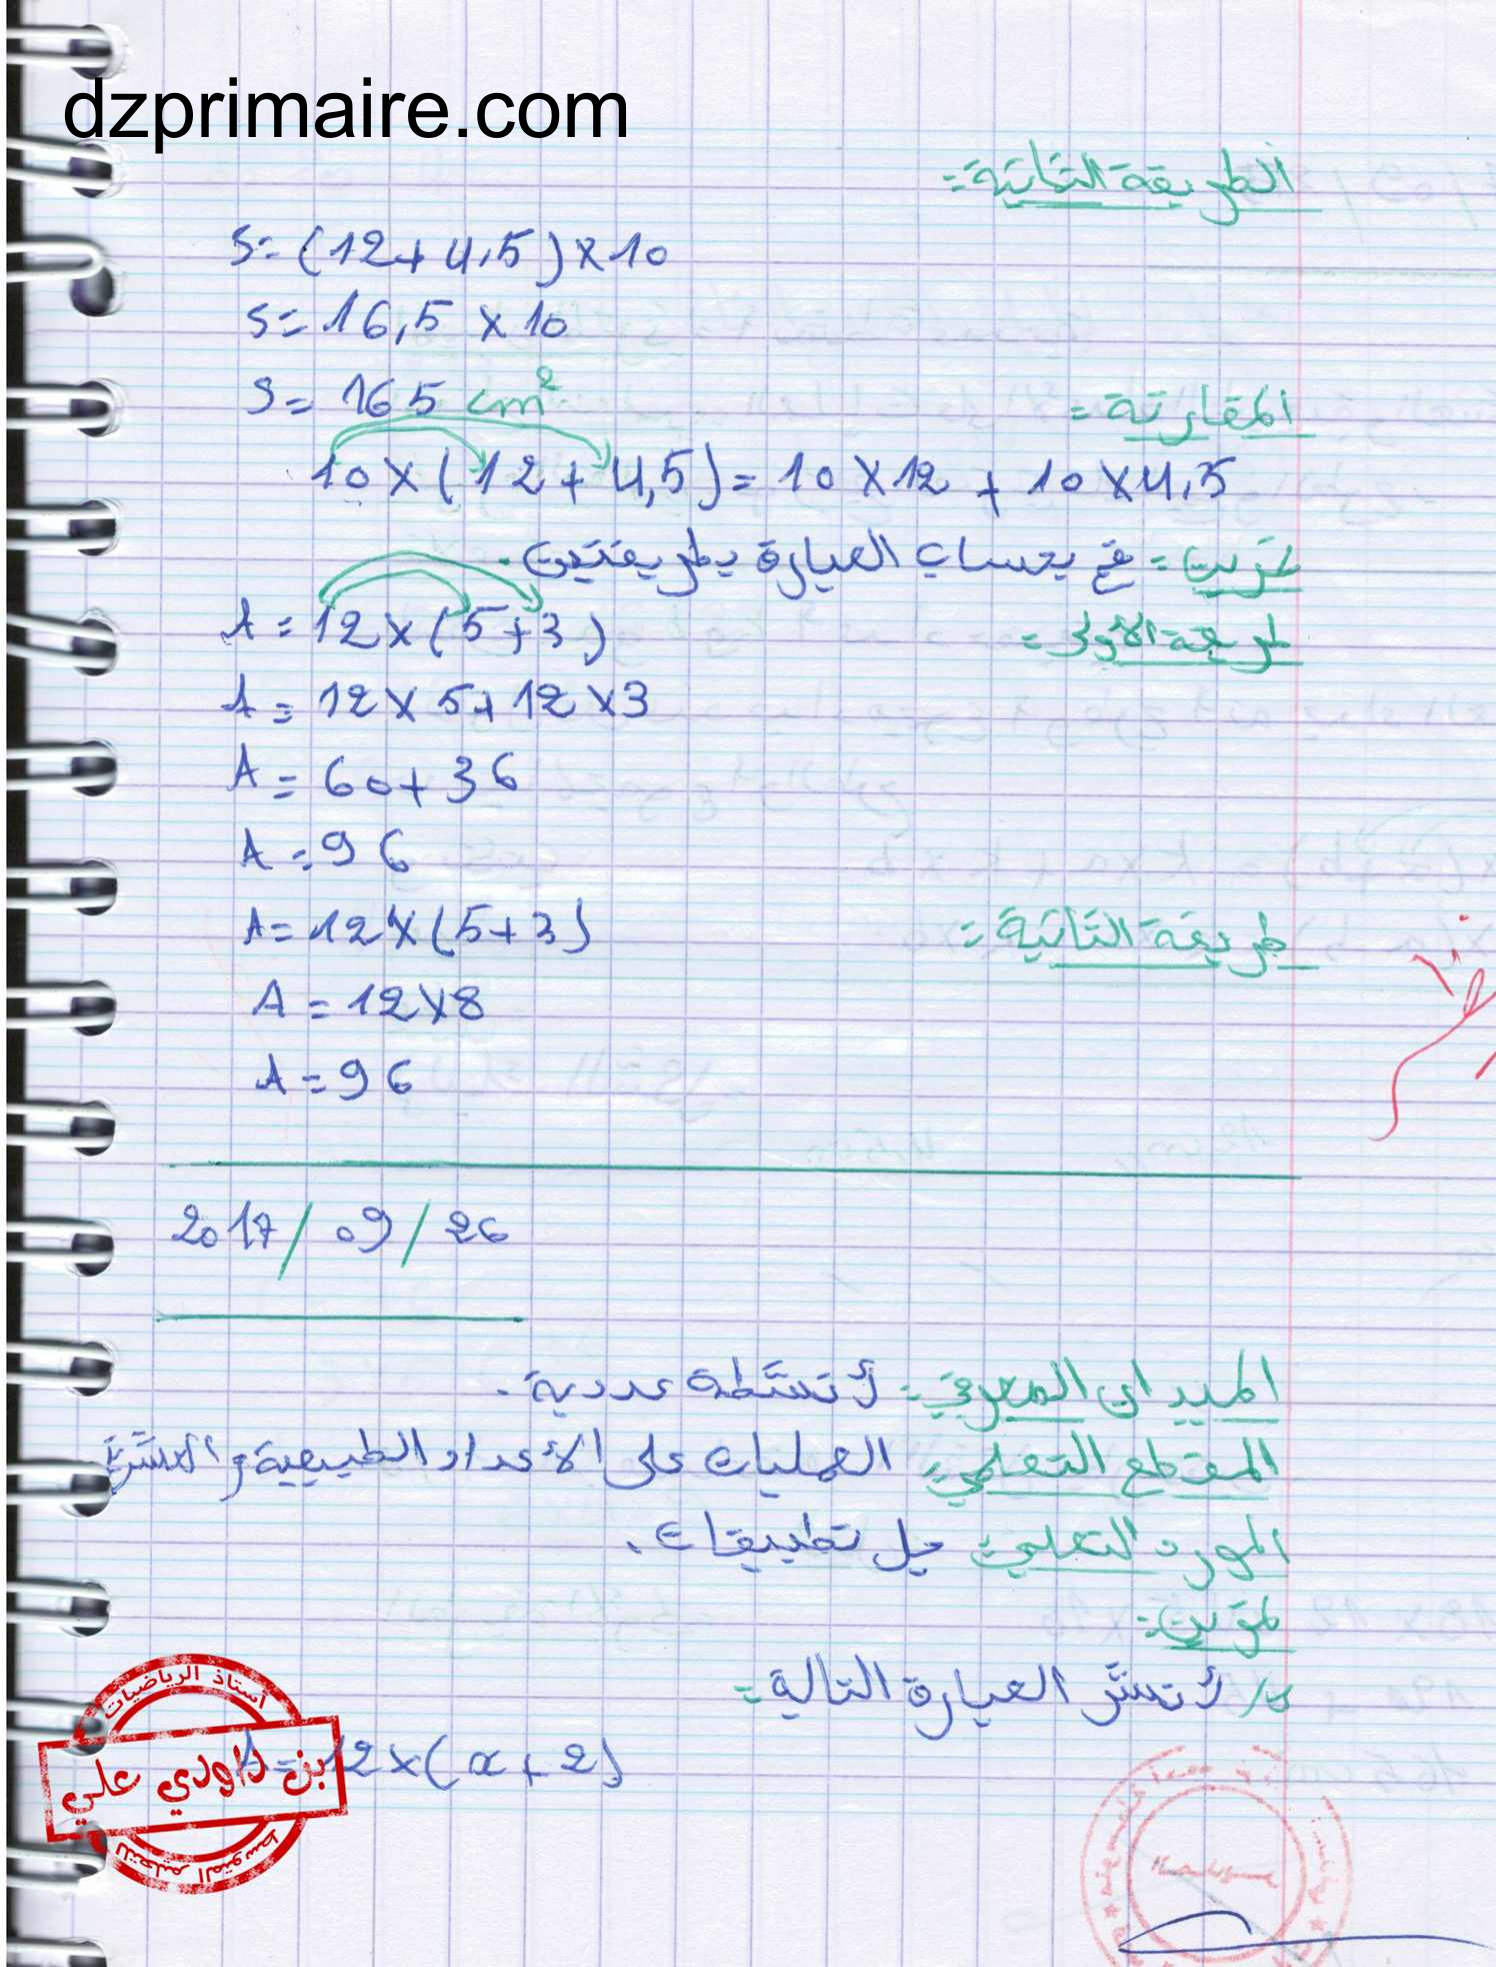 dzprimaire.com
الطريقة الثانية:
S = (12 + 4,5) × 10
S = 16,5 × 10
S = 165 cm²
المقارنة:
10 × (12 + 4,5) = 10 × 12 + 10 × 4,5
تمرين: قم بحساب العبارة بطريقتين.
طريقة الأولى:
A = 12 × (5 + 3)
A = 12 × 5 + 12 × 3
A = 60 + 36
A = 96
طريقة الثانية:
A = 12 × (5 + 3)
A = 12 × 8
A = 96
2017 / 09 / 26
الميدان المعرفي: أنشطة عددية.
المقطع التعلمي: العمليات على الأعداد الطبيعية و العشرية
المورد التعلمي: حل تطبيقات.
تمرين:
أنشر العبارة التالية:
A = 12 × (x + 2)
أستاذ الرياضيات
بن داودي علي
للتعليم المتوسط